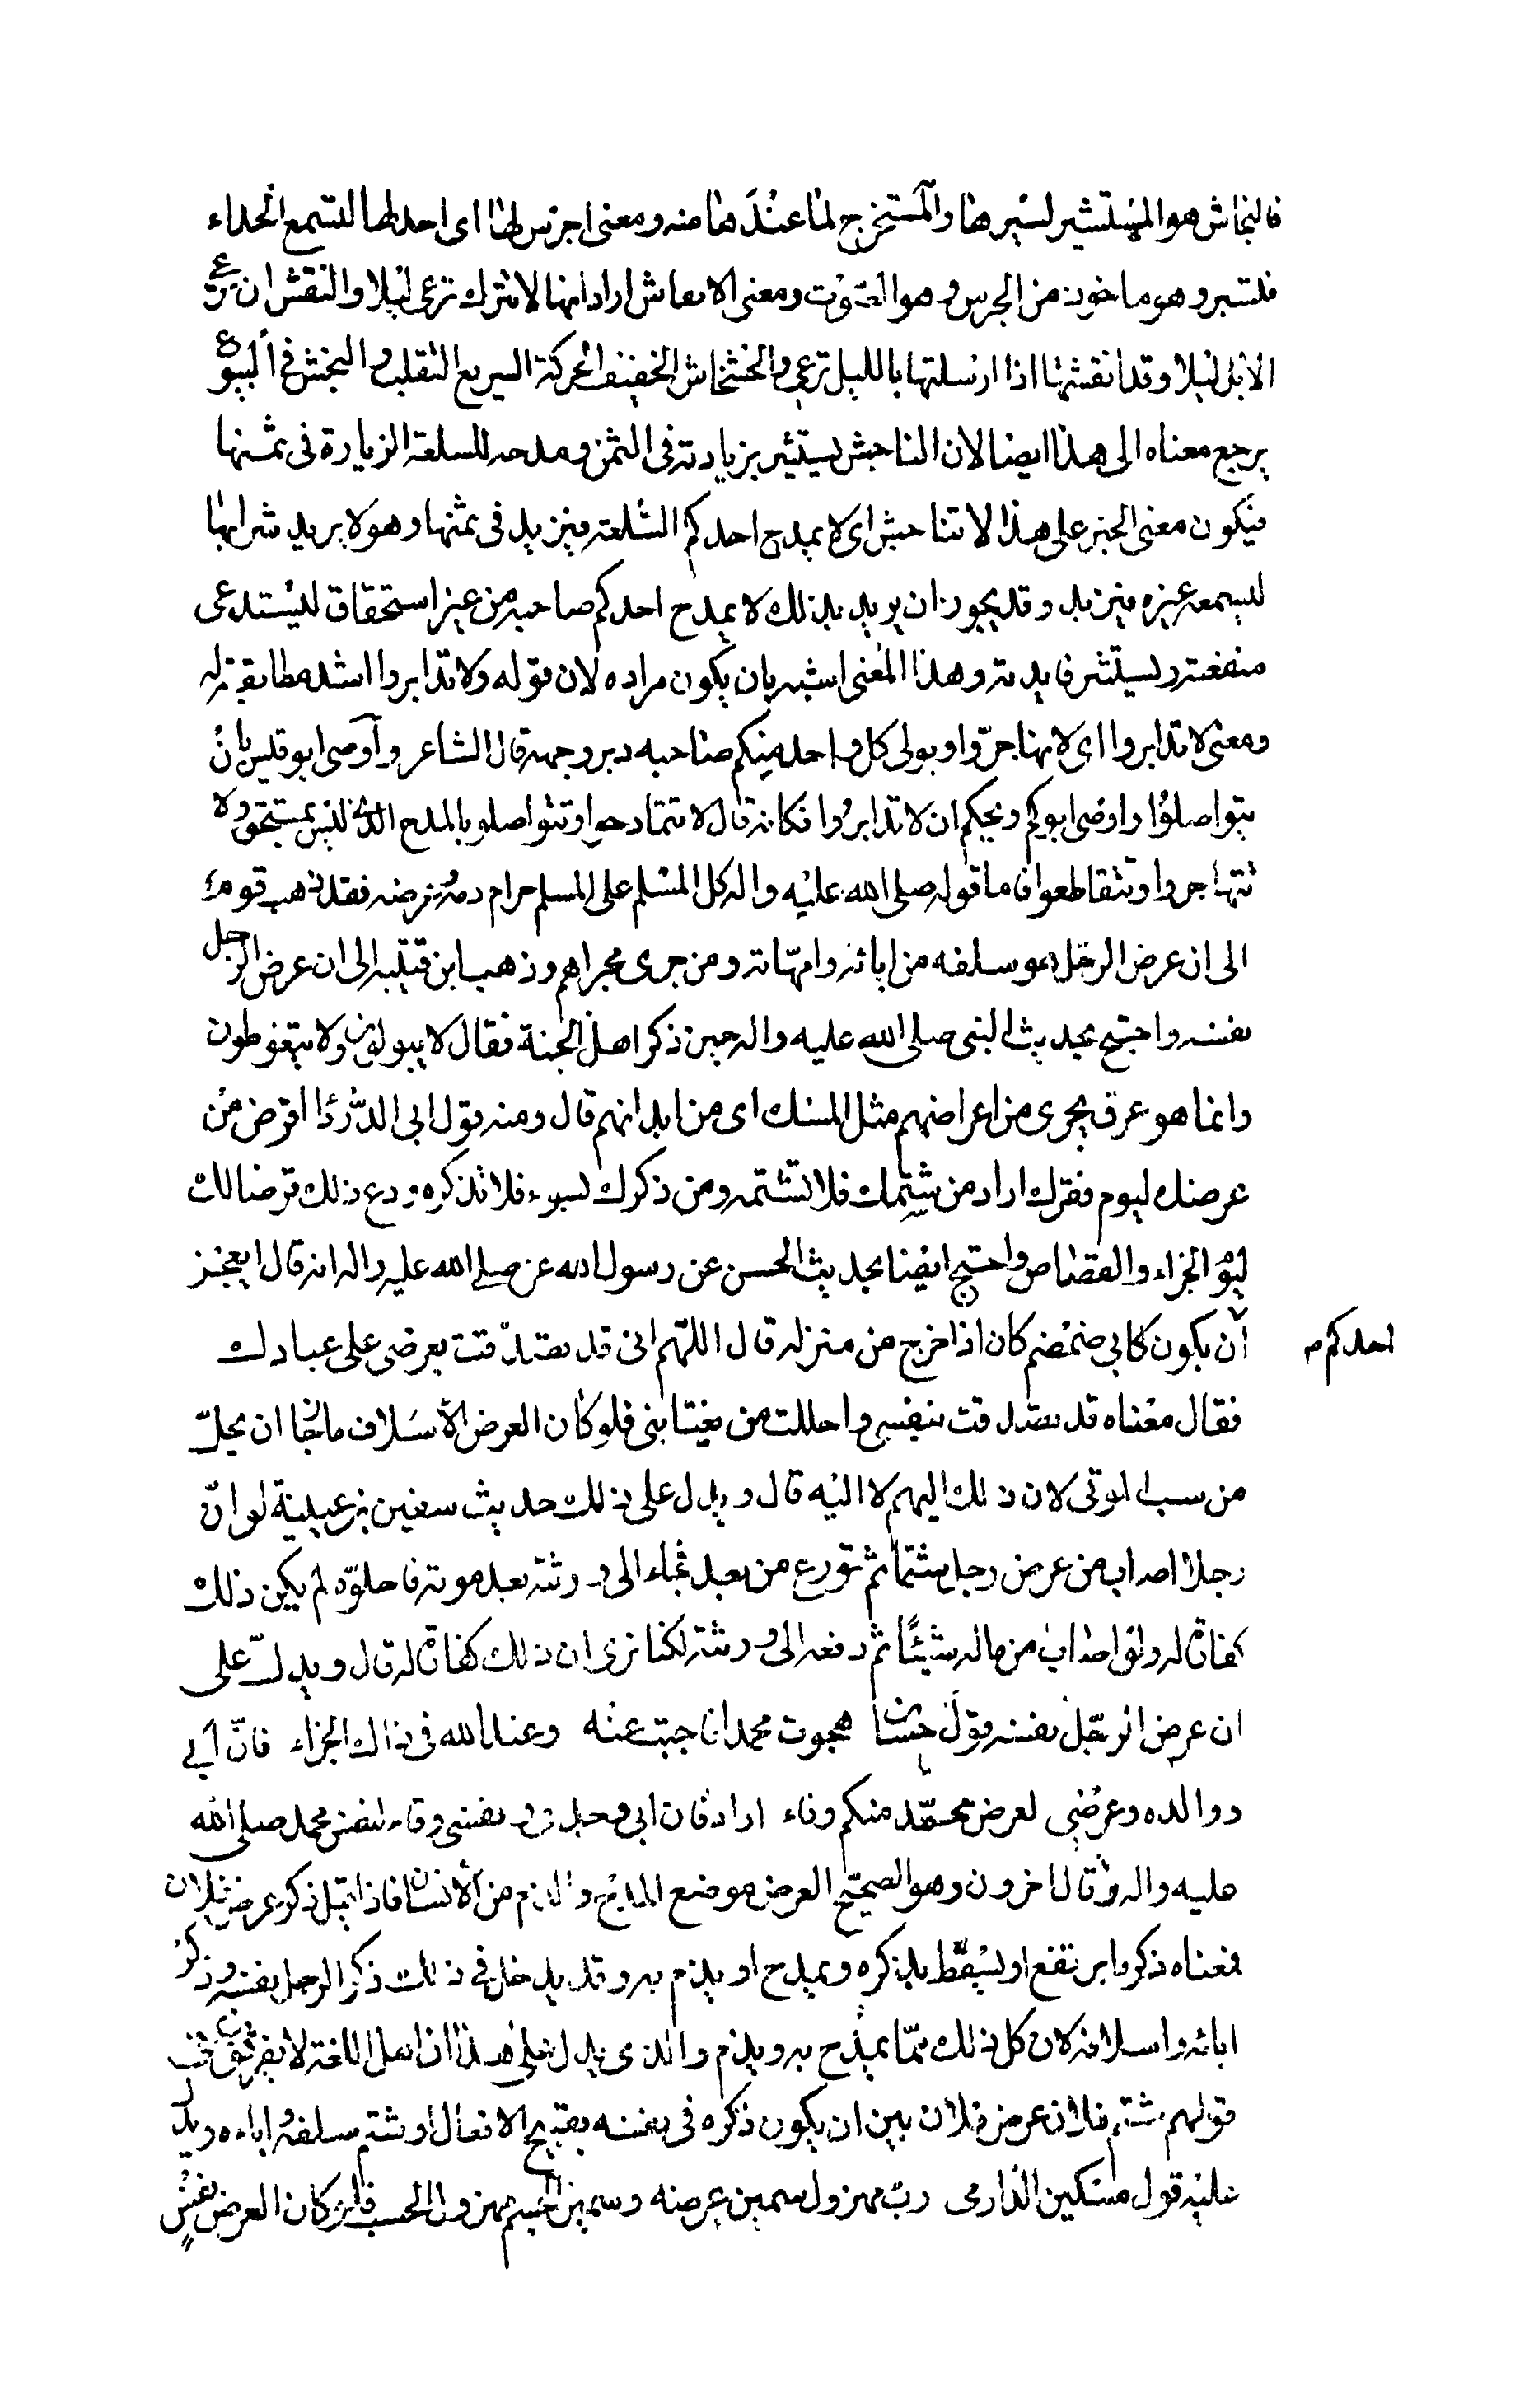 فالنجاش هو المستشير لسيرها والمستخرج لما عندها منه ومعنى اجرس لها اى احد لها لتسمع الحداء
فتسير وهو ماخوذ من الجرس وهو الصوت ومعنى الانفاش اراد انها لا تترك ترعى ليلا والنفش ان ترعى
الابل ليلا وقد انفشتها اذا ارسلتها بالليل ترعى والخشخاش الخفيف الحركة السريع التقلب والنجش فى البيوع
يرجع معناه الى هذا ايضا لان الناجش يستثير بزيادته فى الثمن ومدحه للسلعة الزيادة فى ثمنها
فيكون معنى الخبر على هذا لا تناجشوا اى لا يمدح احدكم السلعة فيزيد فى ثمنها وهو لا يريد شرايها
ليسمعه غيره فيزيد وقد يجوز ان يريد بذلك لا يمدح احدكم صاحبه من غير استحقاق ليستدعى
منفعته ويستثير فايدته وهذا المعنى اشبه بان يكون مراده لان قوله ولا تدابروا اشد مطابقة له
ومعنى لا تدابروا اى لا تهاجروا ويولى كل واحد منكم صاحبه دبر وجهه قال الشاعر وآوصى ابو قيس بان
يتواصلوا واوصى ابوكم ويحكم ان لا تدابروا فكانه قال لا تتمادحوا وتتواصلوا بالمدح الذى ليس بمستحق ولا
تتهاجروا وتتقاطعوا فاما قوله صلى الله عليه واله كل المسلم على المسلم حرام دمه وعرضه فقد ذهب قوم
الى ان عرض الرجل هو سلفه من ابائه وامهاته ومن جرى مجراهم وذهب ابن قتيبه الى ان عرض الرجل
نفسه واحتج بحديث النبى صلى الله عليه واله حين ذكر اهل الجنة فقال لا يبولون ولا يتغوطون
وانما هو عرق يجرى من اعراضهم مثل المسك اى من ابدانهم قال ومنه قول ابى الدرداا اقرض من
عرضك ليوم فقرك اراد من شتمك فلا تشتمه ومن ذكرك بسوء فلا تذكره ودع ذلك قرضا لك
ليوم الجزاء والقصاص واحتج ايضا بحديث الحسن عن رسول الله صلى الله عليه واله انه قال ايعجز
احدكم
ان يكون كابى ضمضم كان اذا خرج من منزله قال اللهم انى قد تصدقت بعرضى على عبادك
فقال معناه قد تصدقت بنفسى واحللت من يغتابنى فلو كان العرض الاسلاف ما جاز ان يحل
من سب الموتى لان ذلك اليهم لا اليه قال ويدل على ذلك حديث سفين بن عيينة لو ان
رجلا اصاب من عرض رجل شتما ثم تورع من بعد فجاء الى ورثته بعد موته فاحلوه لم يكن ذلك
كفارة له ولو اصاب من ماله شيئا ثم دفعه الى ورثته لكنا نرى ان ذلك كفارة له قال ويدل على
ان عرض الرجل نفسه قول حسان هجوت محمدا فاجبت عنه وعند الله فى ذاك الجزاء فان ابى
ووالده وعرضى لعرض محمد منكم وقاء اراد فان ابى وجدى ونفسى وقاء لنفس محمد صلى الله
عليه واله وقال اخرون وهو الصحيح العرض موضع المدح والذم من الانسان فاذا قيل ذكر عرض فلان
فمعناه ذكر ما يرتفع او يسقط بذكره ويمدح او يذم به وقد يدخل فى ذلك ذكر الرجل نفسه وذكر
ابائه واسلافه لان كل ذلك مما يمدح به ويذم والذى يدل على هذا ان اهل اللغة لا يفرقون فى
قولهم شتم فلان عرض فلان بين ان يكون ذكره فى نفسه بقبيح الافعال او شتم سلفه واباءه ويدل
عليه قول مسكين الدارمى رب مهزول سمين عرضه وسمين الجسم مهزول الحسب فلو كان العرض نفس